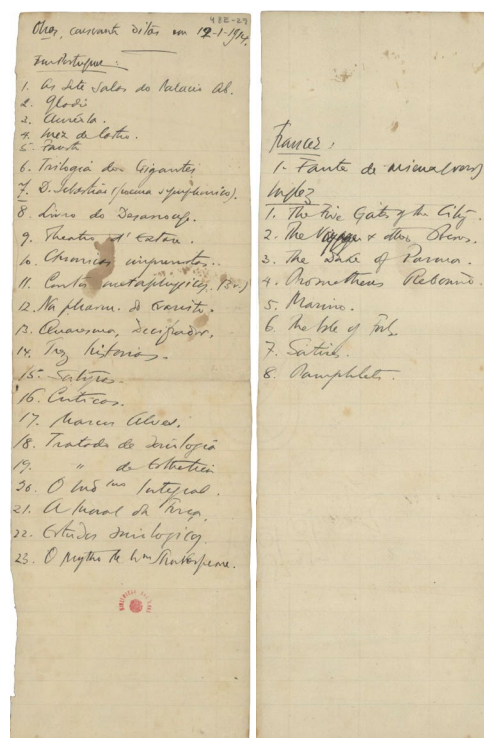 48E-29
Obras, consoante ditas em 12-1-1914.
Em Portuguez:
1. As Sete Salas do Palacio Ab.
2. Gladio
3. Auréola.
4. Inez de Castro.
5. Fausto
6. Trilogia dos Gigantes
7. D. Sebastião (poema symphonico).
8. Livro do Desasocego.
9. Theatro d'Extase.
10. Chronicas
11. Contos metaphysicos.
12. Na pharm. do Evaristo.
13. Quaresma, Decifrador.
14. Trez historias.
15. Satyras.
16. Criticas.
17. Marcos Alves.
18. Tratado de Sociologia
19. " de Esthetica
20. O Integral.
21. A Moral da Força.
22. Estudos Sociologicos.
23. O Mytho de Wm Shakespeare.
Francez:
1. de
Inglez
1. The Five Gates of the City.
2. The & other Poems.
3. The Duke of Parma.
4. Prometheus Rebound.
5. Marino.
6. The
7. Satires.
8. Pamphlets.